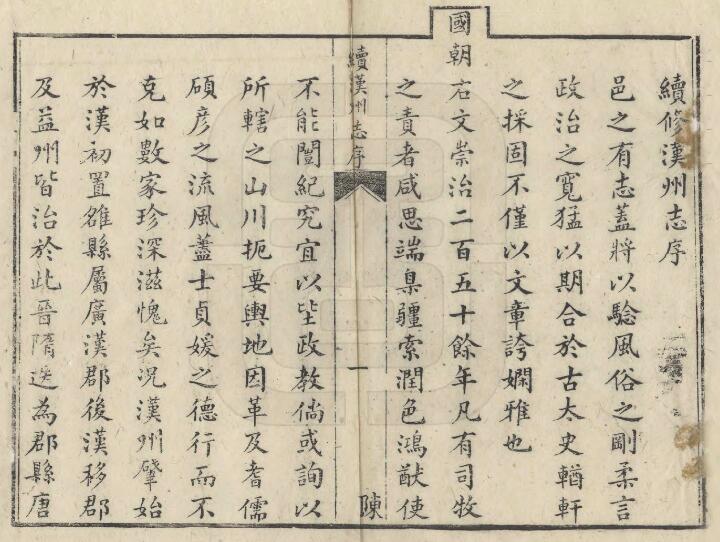 續修漢州志序
邑之有志蓋將以驗風俗之剛柔言
政治之寬猛以期合於古太史輶軒
之採固不僅以文章誇嫻雅也
國朝右文崇治二百五十餘年凡有司牧
之責者咸思端臬疆索潤色鴻猷使
續漢州志序
一
陳
不能闡紀究宜以坒政教倘或詢以
所轄之山川扼要輿地因革及耆儒
碩彥之流風藎士貞媛之德行而不
克如數家珍深滋愧矣況漢州肇始
於漢初置雒縣屬廣漢郡後漢移郡
及益州皆治於此晉隋迭為郡縣唐